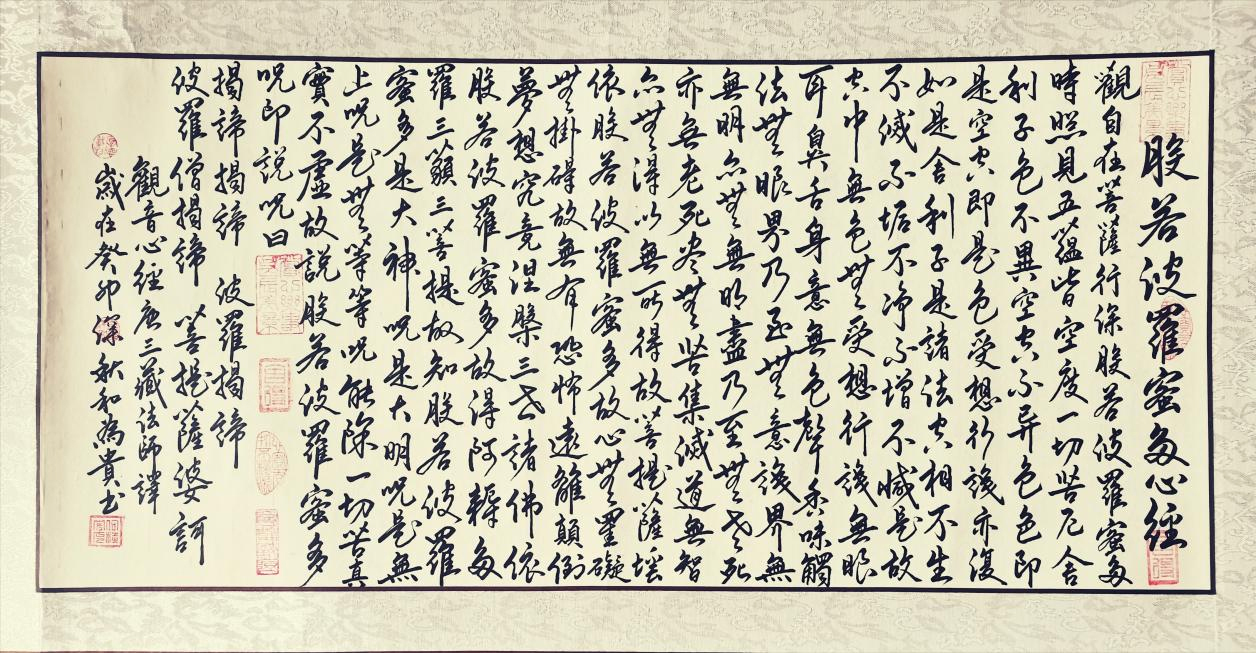 般若波羅蜜多心經
觀自在菩薩行深般若波羅蜜多
時照見五蘊皆空度一切苦厄舍
利子色不異空空不异色色即
是空空即是色受想行識亦復
如是舍利子是諸法空相不生
不滅不垢不净不增不減是故
空中無色無受想行識無眼
耳鼻舌身意無色聲香味觸
法無眼界乃至無意識界無
無明亦無無明盡乃至無老死
亦無老死盡無苦集滅道無智
亦無得以無所得故菩提薩埵
依般若波羅蜜多故心無罣礙
無掛碍故無有恐怖遠離顛倒
夢想究竟涅槃三世諸佛依
般若波羅蜜多故得阿耨多
羅三藐三菩提故知般若波羅
蜜多是大神呪是大明呪是無
上呪是無等等呪能除一切苦真
實不虛故說般若波羅蜜多
呪即說呪曰
揭諦揭諦 波羅揭諦
波羅僧揭諦 菩提薩婆訶
觀音心經唐三藏法師譯
歲在癸卯深秋和為貴書